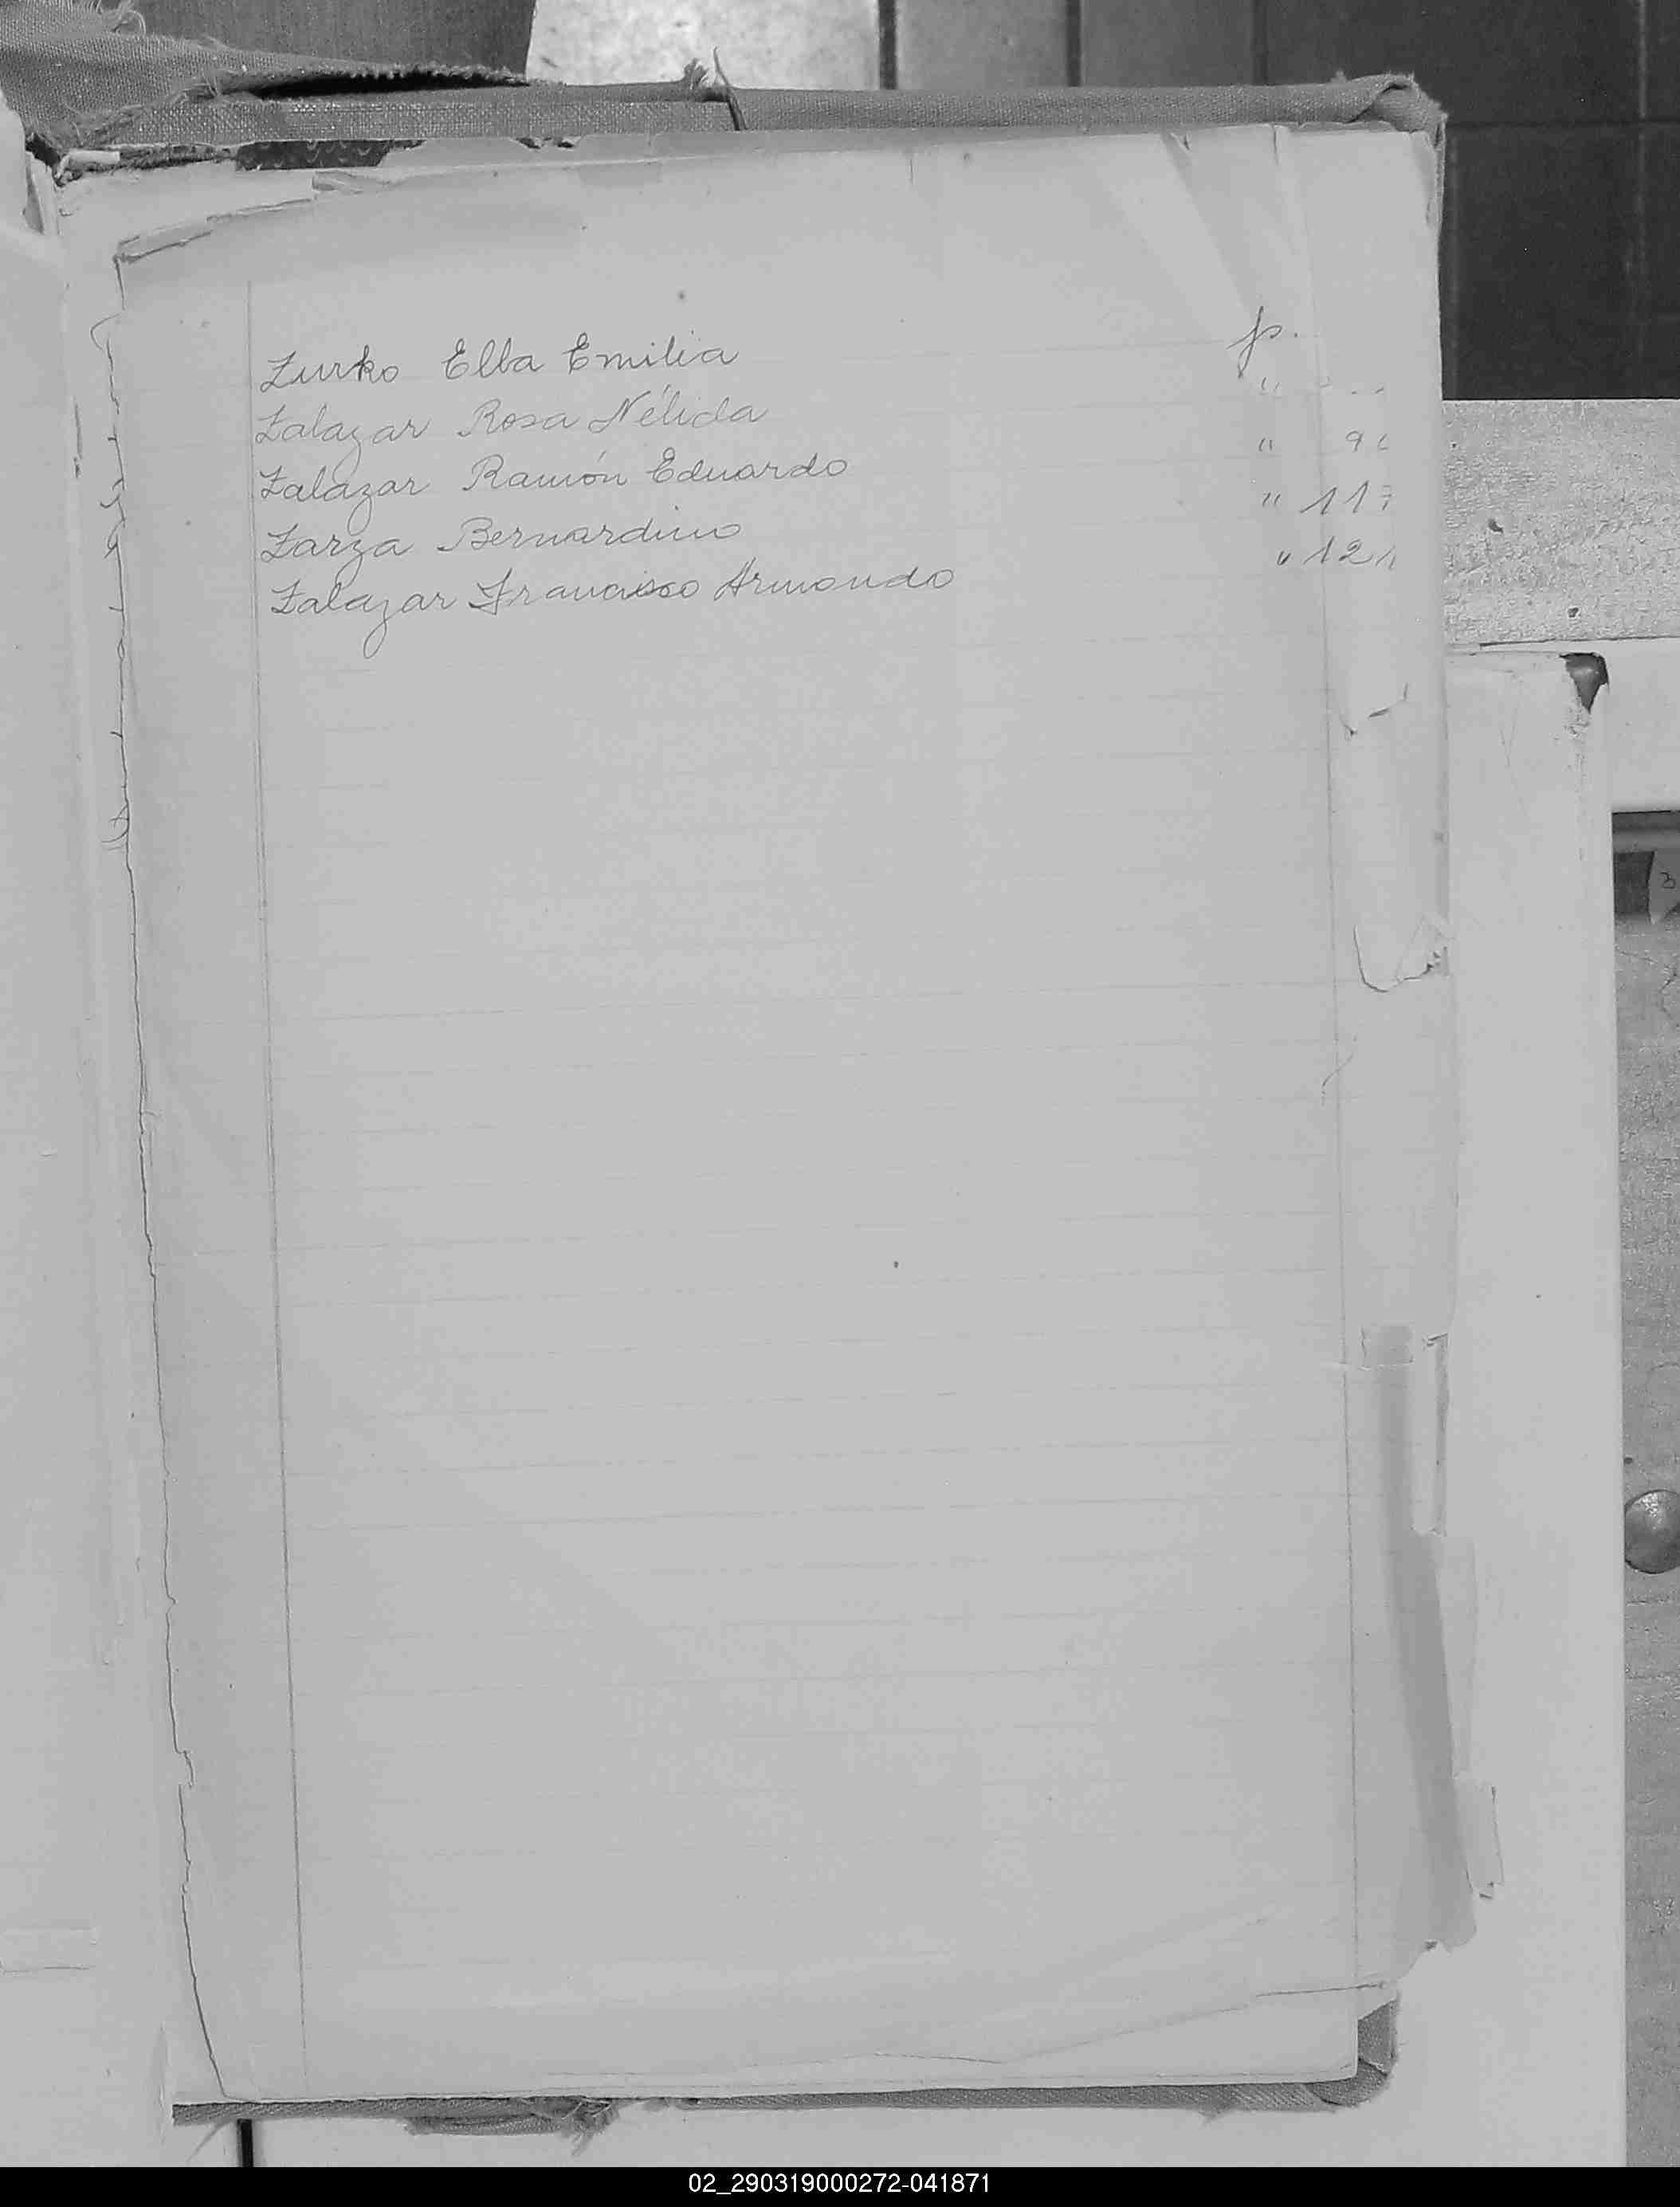 Zurko Elba Emilia f.
Zalazar Rosa Nélida "
Zalazar Ramón Eduardo "
Zarza Bernardino "
Zalazar Francisco Armando "
02_290319000272-041871